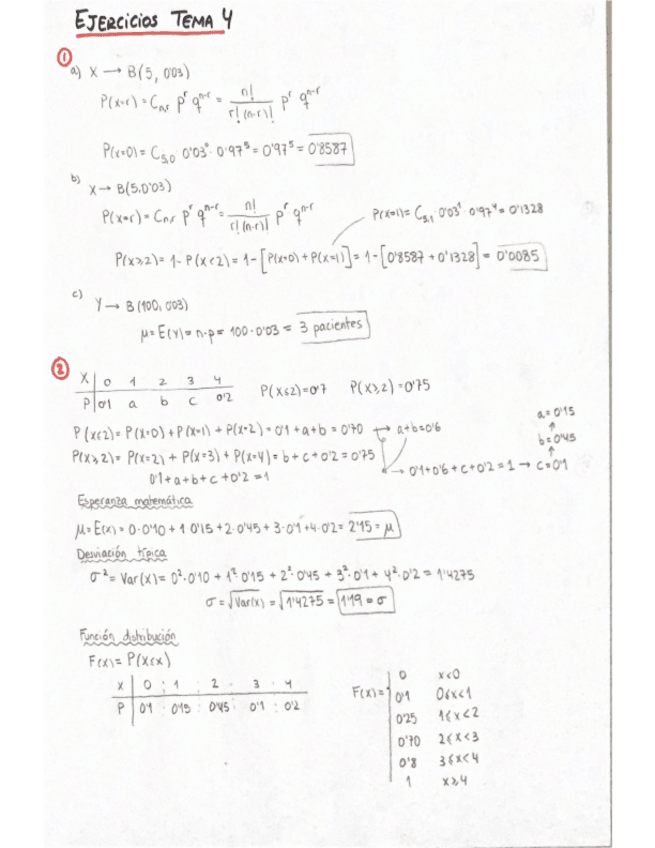 EJERCICIOS TEMA 4
①
a) X → B(5, 0'03)
P(x=r) = C_{n,r} p^r q^{n-r} = n! / r!(n-r)! p^r q^{n-r}
P(x=0) = C_{5,0} 0'03⁰ · 0'97⁵ = 0'97⁵ = 0'8587
b) X → B(5,0'03)
P(x=r) = C_{n,r} p^r q^{n-r} = n! / r!(n-r)! p^r q^{n-r}
P(x=1) = C_{5,1} 0'03¹ · 0'97⁴ = 0'1328
P(x≥2) = 1 - P(x<2) = 1 - [P(x=0) + P(x=1)] = 1 - [0'8587 + 0'1328] = 0'0085
c) Y → B(100, 0'03)
μ = E(Y) = n·p = 100·0'03 = 3 pacientes
②
X 0 1 2 3 4
P 0'1 a b c 0'2
P(x≤2) = 0'7 P(x≥2) = 0'75
P(x≤2) = P(x=0) + P(x=1) + P(x=2) = 0'1 + a + b = 0'70 → a+b = 0'6
P(x≥2) = P(x=2) + P(x=3) + P(x=4) = b + c + 0'2 = 0'75
0'1 + a + b + c + 0'2 = 1
→ 0'1 + 0'6 + c + 0'2 = 1 → c = 0'1
↑
b = 0'45
↑
a = 0'15
Esperanza matemática
μ = E(x) = 0·0'10 + 1·0'15 + 2·0'45 + 3·0'1 + 4·0'2 = 2'15 = μ
Desviación típica
σ² = Var(x) = 0²·0'10 + 1²·0'15 + 2²·0'45 + 3²·0'1 + 4²·0'2 = 1'4275
σ = √Var(x) = √1'4275 = 1'19 = σ
Función distribución
F(x) = P(X≤x)
X 0 1 2 3 4
P 0'1 0'15 0'45 0'1 0'2
F(x) =
0 x<0
0'1 0≤x<1
0'25 1≤x<2
0'70 2≤x<3
0'8 3≤x<4
1 x≥4